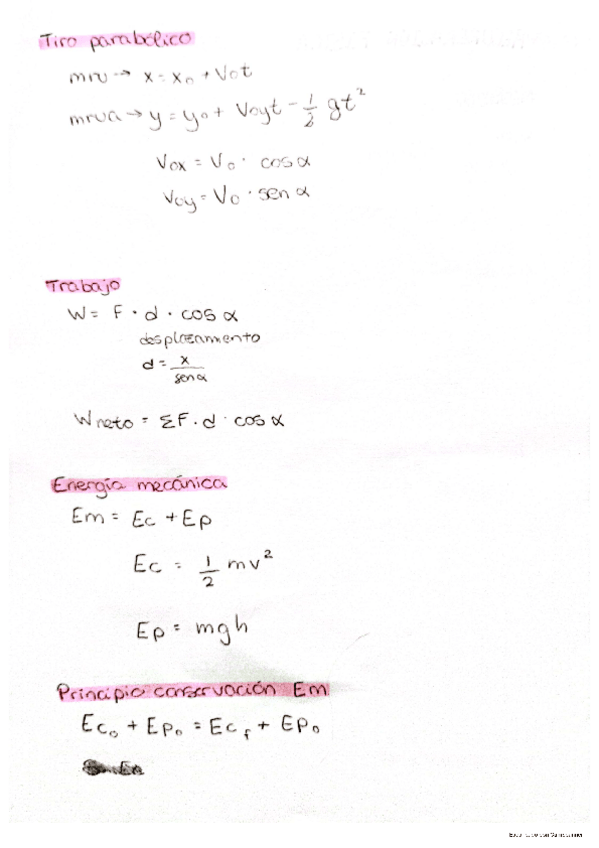 Tiro parabólico
mru → x = x₀ + V₀t
mrua → y = y₀ + V₀yt - 1/2 gt²
V₀x = V₀ · cos α
V₀y = V₀ · sen α
Trabajo
W = F · d · cos α
desplazamiento
d = x / sen α
Wneto = ΣF · d · cos α
Energía mecánica
Em = Ec + Ep
Ec = 1/2 mv²
Ep = mgh
Principio conservación Em
Ec₀ + Ep₀ = Ecf + Ep₀